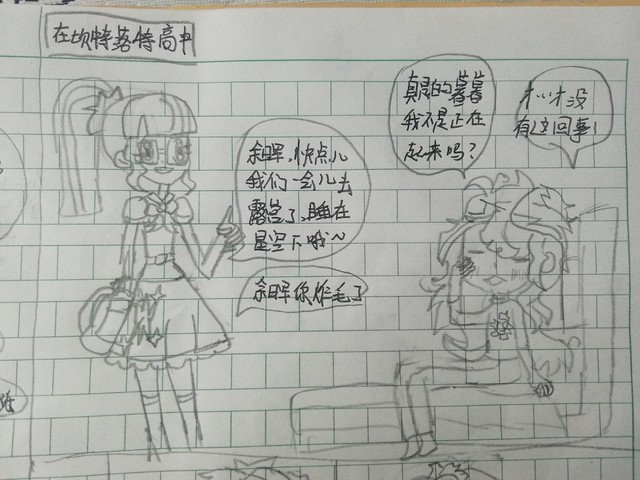 在坎特落特高中
余晖,快点儿
我们一会儿去
露营了,睡在
星空下哦~
余晖你炸毛了
真是的暮暮
我不是正在
起来吗?
才没
有这回事!